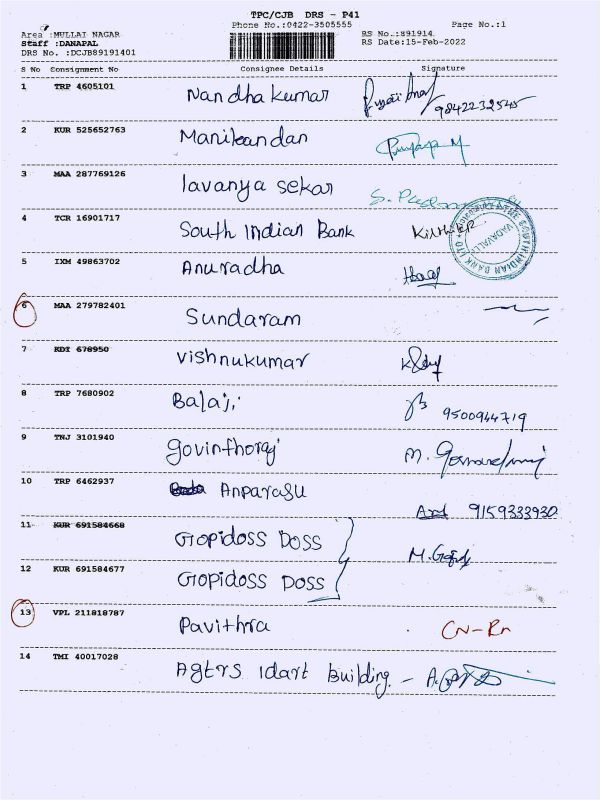 TPC/CJB DRS - P41
Phone No.:0422-3505555 Page No.:1
Area :MULLAI NAGAR RS No.:891914
Staff :DANAPAL RS Date:15-Feb-2022
DRS No. :DCJB89191401
S No Consignment No Consignee Details Signature
1 TRP 4605101 Nandhakumar 9842232545
2 KUR 525652763 Manikandan
3 MAA 287769126 lavanya sekar
4 TCR 16901717 South Indian Bank
5 IXM 49863702 Anuradha
6 MAA 279782401 Sundaram
7 KDI 678950 Vishnukumar
8 TRP 7680902 Balaji 9500944719
9 TNJ 3101940 govinthoraj
10 TRP 6462937 Anparasu 9159333930
11 KUR 691584668 Gopidoss Doss
12 KUR 691584677 Gopidoss Doss
13 VPL 211818787 Pavithra CN-Rn
14 TMI 40017028 Agtrs Idart building -